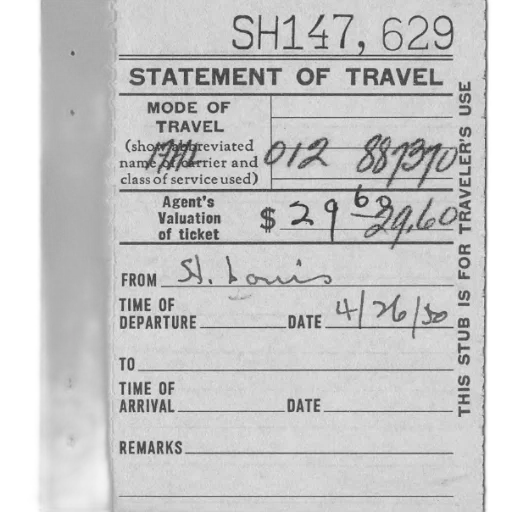 SH147, 629
STATEMENT OF TRAVEL
MODE OF
TRAVEL
(show abbreviated
name of carrier and
class of service used)
012 887370
Agent's
Valuation
of ticket
$ 29 60 29.60
FROM St. Louis
TIME OF
DEPARTURE DATE 4/26/50
TO
TIME OF
ARRIVAL DATE
REMARKS
THIS STUB IS FOR TRAVELER'S USE